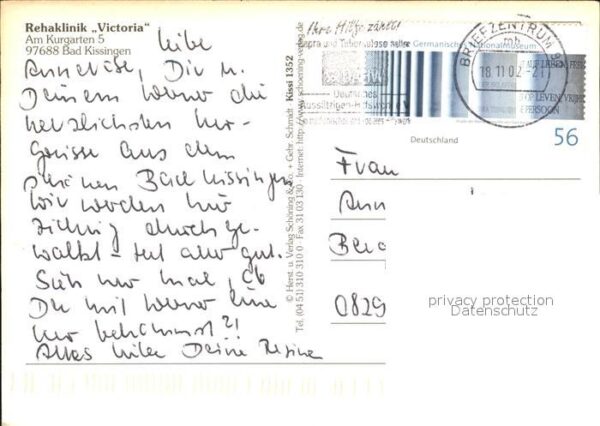 Rehaklinik „Victoria"
Am Kurgarten 5
97688 Bad Kissingen
Liebe
Anneliese, Dir u.
Deinem Werner die
herzlichsten Kur-
Grüsse aus dem
schönen Bad Kissingen
Wir werden hier
richtig durchge-
walkt - tut aber gut.
Sieh nur mal, ob
Du mit Werner eine
Kur bekommst?!
Alles Liebe Deine
© Herst. u. Verlag Schöning & Co. + Gebr. Schmidt, Kissi 1352
Tel. (04 51) 310 310 0 · Fax 31 03 130 · Internet: http://www.schoening-verlag.de
Ihre Hilfe zählt!
Lepra und Tuberkulose
Germanisches Nationalmuseum
Deutsches
Aussätzigen-Hilfswerk e.V.
BRIEFZENTRUM
mb
18.11.02-21
Deutschland
56
Frau
Ann
0829
privacy protection
Datenschutz